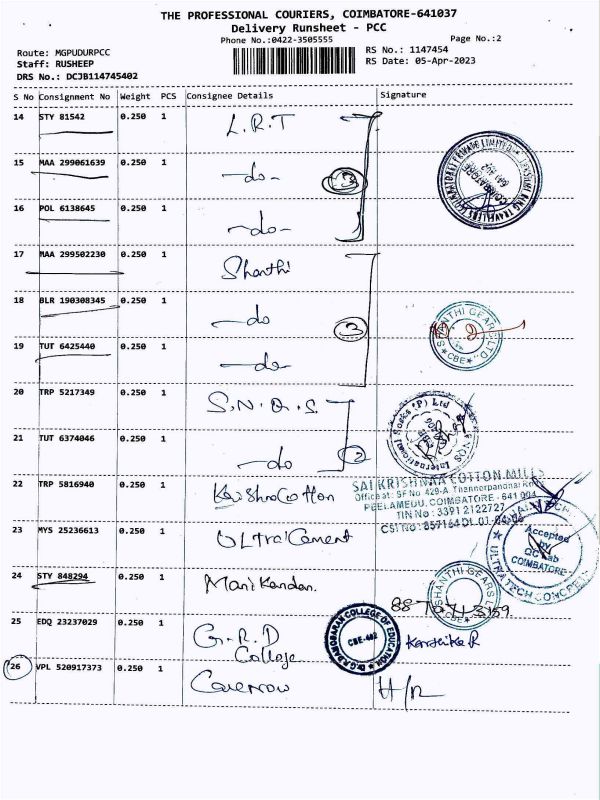 THE PROFESSIONAL COURIERS, COIMBATORE-641037
Delivery Runsheet - PCC
Phone No.:0422-3505555
Page No.:2
Route: MGPUDURPCC
RS No.: 1147454
Staff: RUSHEEP
RS Date: 05-Apr-2023
DRS No.: DCJB114745402
S No Consignment No Weight PCS Consignee Details Signature
14 STY 81542 0.250 1 L.R.T
15 MAA 299061639 0.250 1 -do- 3
16 POL 6138645 0.250 1 -do-
17 MAA 299502230 0.250 1 Shanthi
18 BLR 190308345 0.250 1 -do 3
SHANTHI GEARS LTD. CBE
19 TUT 6425440 0.250 1 -do-
20 TRP 5217349 0.250 1 S.N.Q.S.
21 TUT 6374046 0.250 1 -do 2
22 TRP 5816940 0.250 1 Cotton
SAI KRISHNAA COTTON MILLS
Office at: SF No. 429-A,
PEELAMEDU, COIMBATORE - 641 004
TIN No : 3391 2122727
CST No : 857164
23 MYS 25236613 0.250 1 Ultra Cement
Accepted
by
QC Lab
COIMBATORE
ULTRATECH CONCRETE
24 STY 848294 0.250 1 Manikandan.
SHANTHI GEARS
25 EDQ 23237029 0.250 1 G.R.D
College
COLLEGE OF EDUCATION
Karthika R
26 VPL 520917373 0.250 1